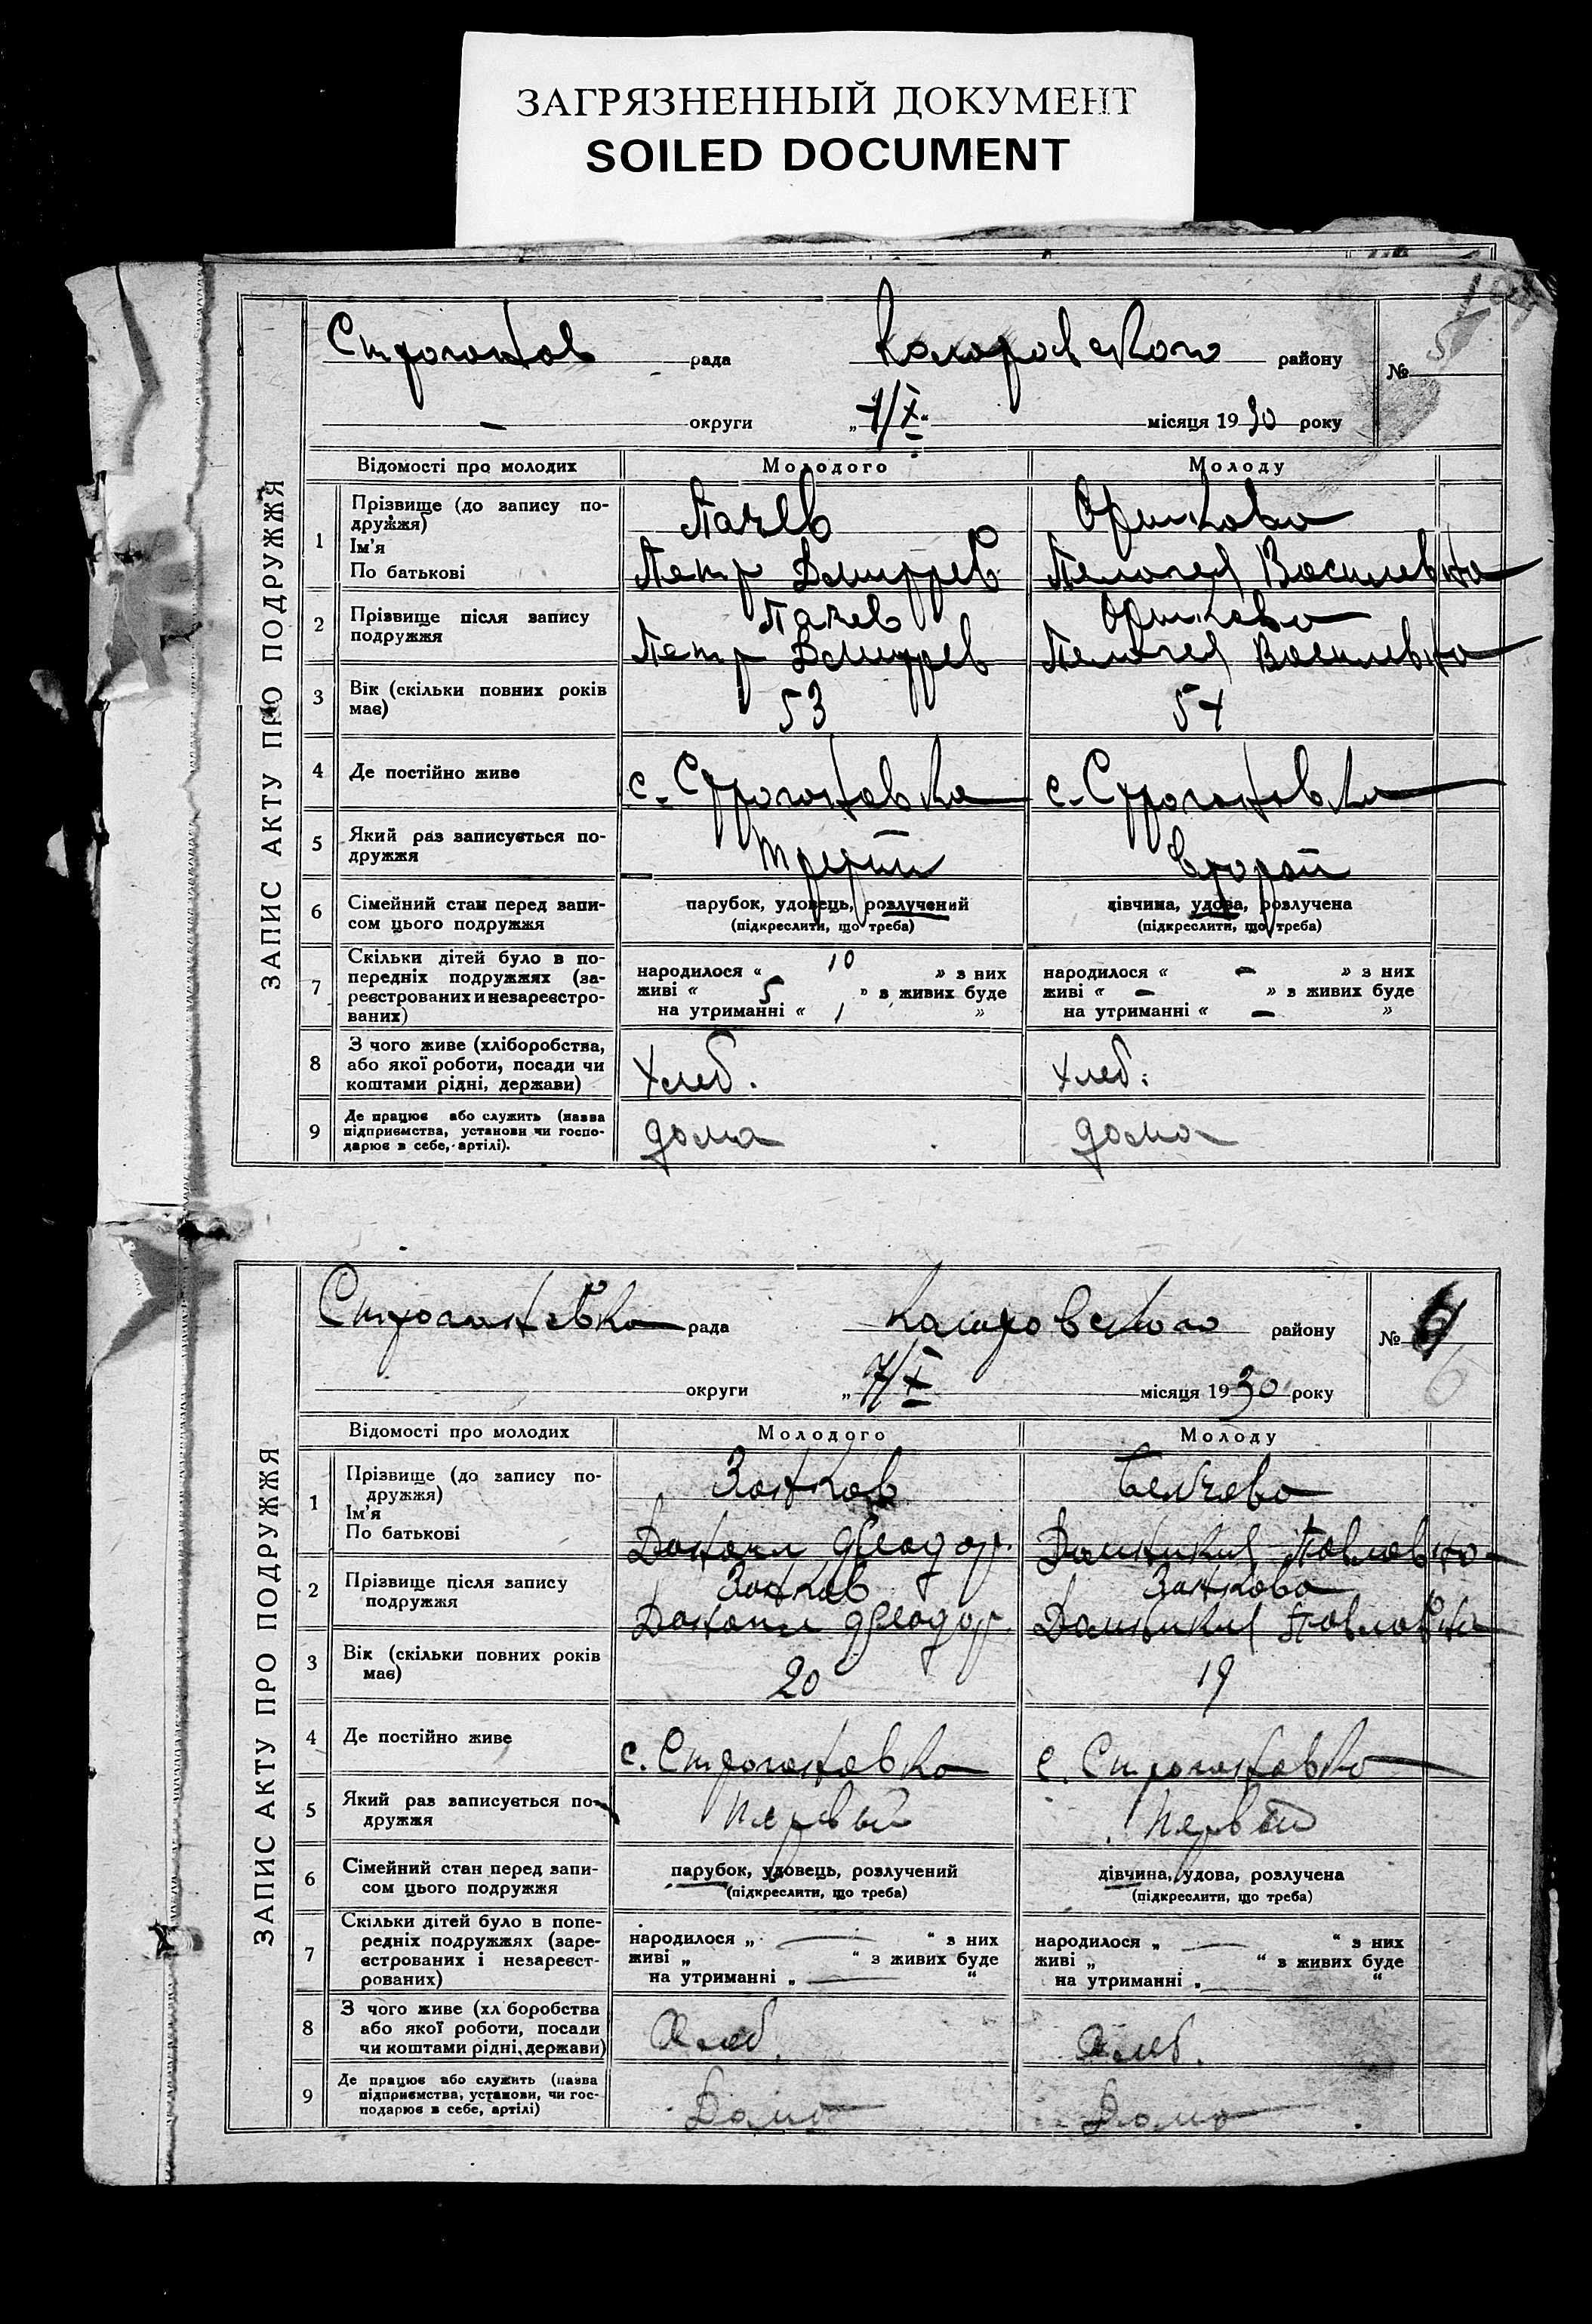 ЗАГРЯЗНЕННЫЙ ДОКУМЕНТ
SOILED DOCUMENT
ЗАПИС АКТУ ПРО ПОДРУЖЖЯ
Строганов рада района району № 5
— округи „7/X“ місяця 1930 року
Відомості про молодих Молодого Молоду
1 Прізвище (до запису подружжя) Пачев
Ім'я
По батькові Петр Дмитрев Пелагея Василевна
2 Прізвище після запису подружжя Пачев
Петр Дмитрев Пелагея Василевна
3 Вік (скільки повних років має) 53 54
4 Де постійно живе с. Строгановка с. Строгановка
5 Який раз записується подружжя третий второй
6 Сімейний стан перед записом цього подружжя парубок, удовець, розлучений дівчина, удова, розлучена
(підкреслити, що треба) (підкреслити, що треба)
7 Скільки дітей було в попередніх подружжях (зареєстрованих и незареєстрованих) народилося « 10 » з них народилося « — » з них
живі « 5 » з живих буде живі « — » з живих буде
на утриманні « 1 » на утриманні « — »
8 З чого живе (хліборобства, або якої роботи, посади чи коштами рідні, держави) хлеб. хлеб.
9 Де працює або служить (назва підприємства, установи чи господарює в себе, артілі). дома дома
ЗАПИС АКТУ ПРО ПОДРУЖЖЯ
Строгановка рада району № 6
округи „7/X місяця 1930 року
Відомості про молодих Молодого Молоду
1 Прізвище (до запису подружжя) Занков Белчева
Ім'я
По батькові Феодор. Павловна
2 Прізвище після запису подружжя Занков Занкова
Феодор. Павловна
3 Вік (скільки повних років має) 20 19
4 Де постійно живе с. Строгановка с. Строгановка
5 Який раз записується подружжя первый первый
6 Сімейний стан перед записом цього подружжя парубок, удовець, розлучений дівчина, удова, розлучена
(підкреслити, що треба) (підкреслити, що треба)
7 Скільки дітей було в попередніх подружжях (зареєстрованих і незареєстрованих) народилося „ — “ з них народилося „ — “ з них
живі „ “ з живих буде живі „ “ з живих буде
на утриманні „ — “ на утриманні „ — “
8 З чого живе (хл боробства або якої роботи, посади чи коштами рідні, держави) Хлеб. Хлеб.
9 Де працює або служить (назва підприємства, установи, чи господарює в себе, артілі) Дома Дома